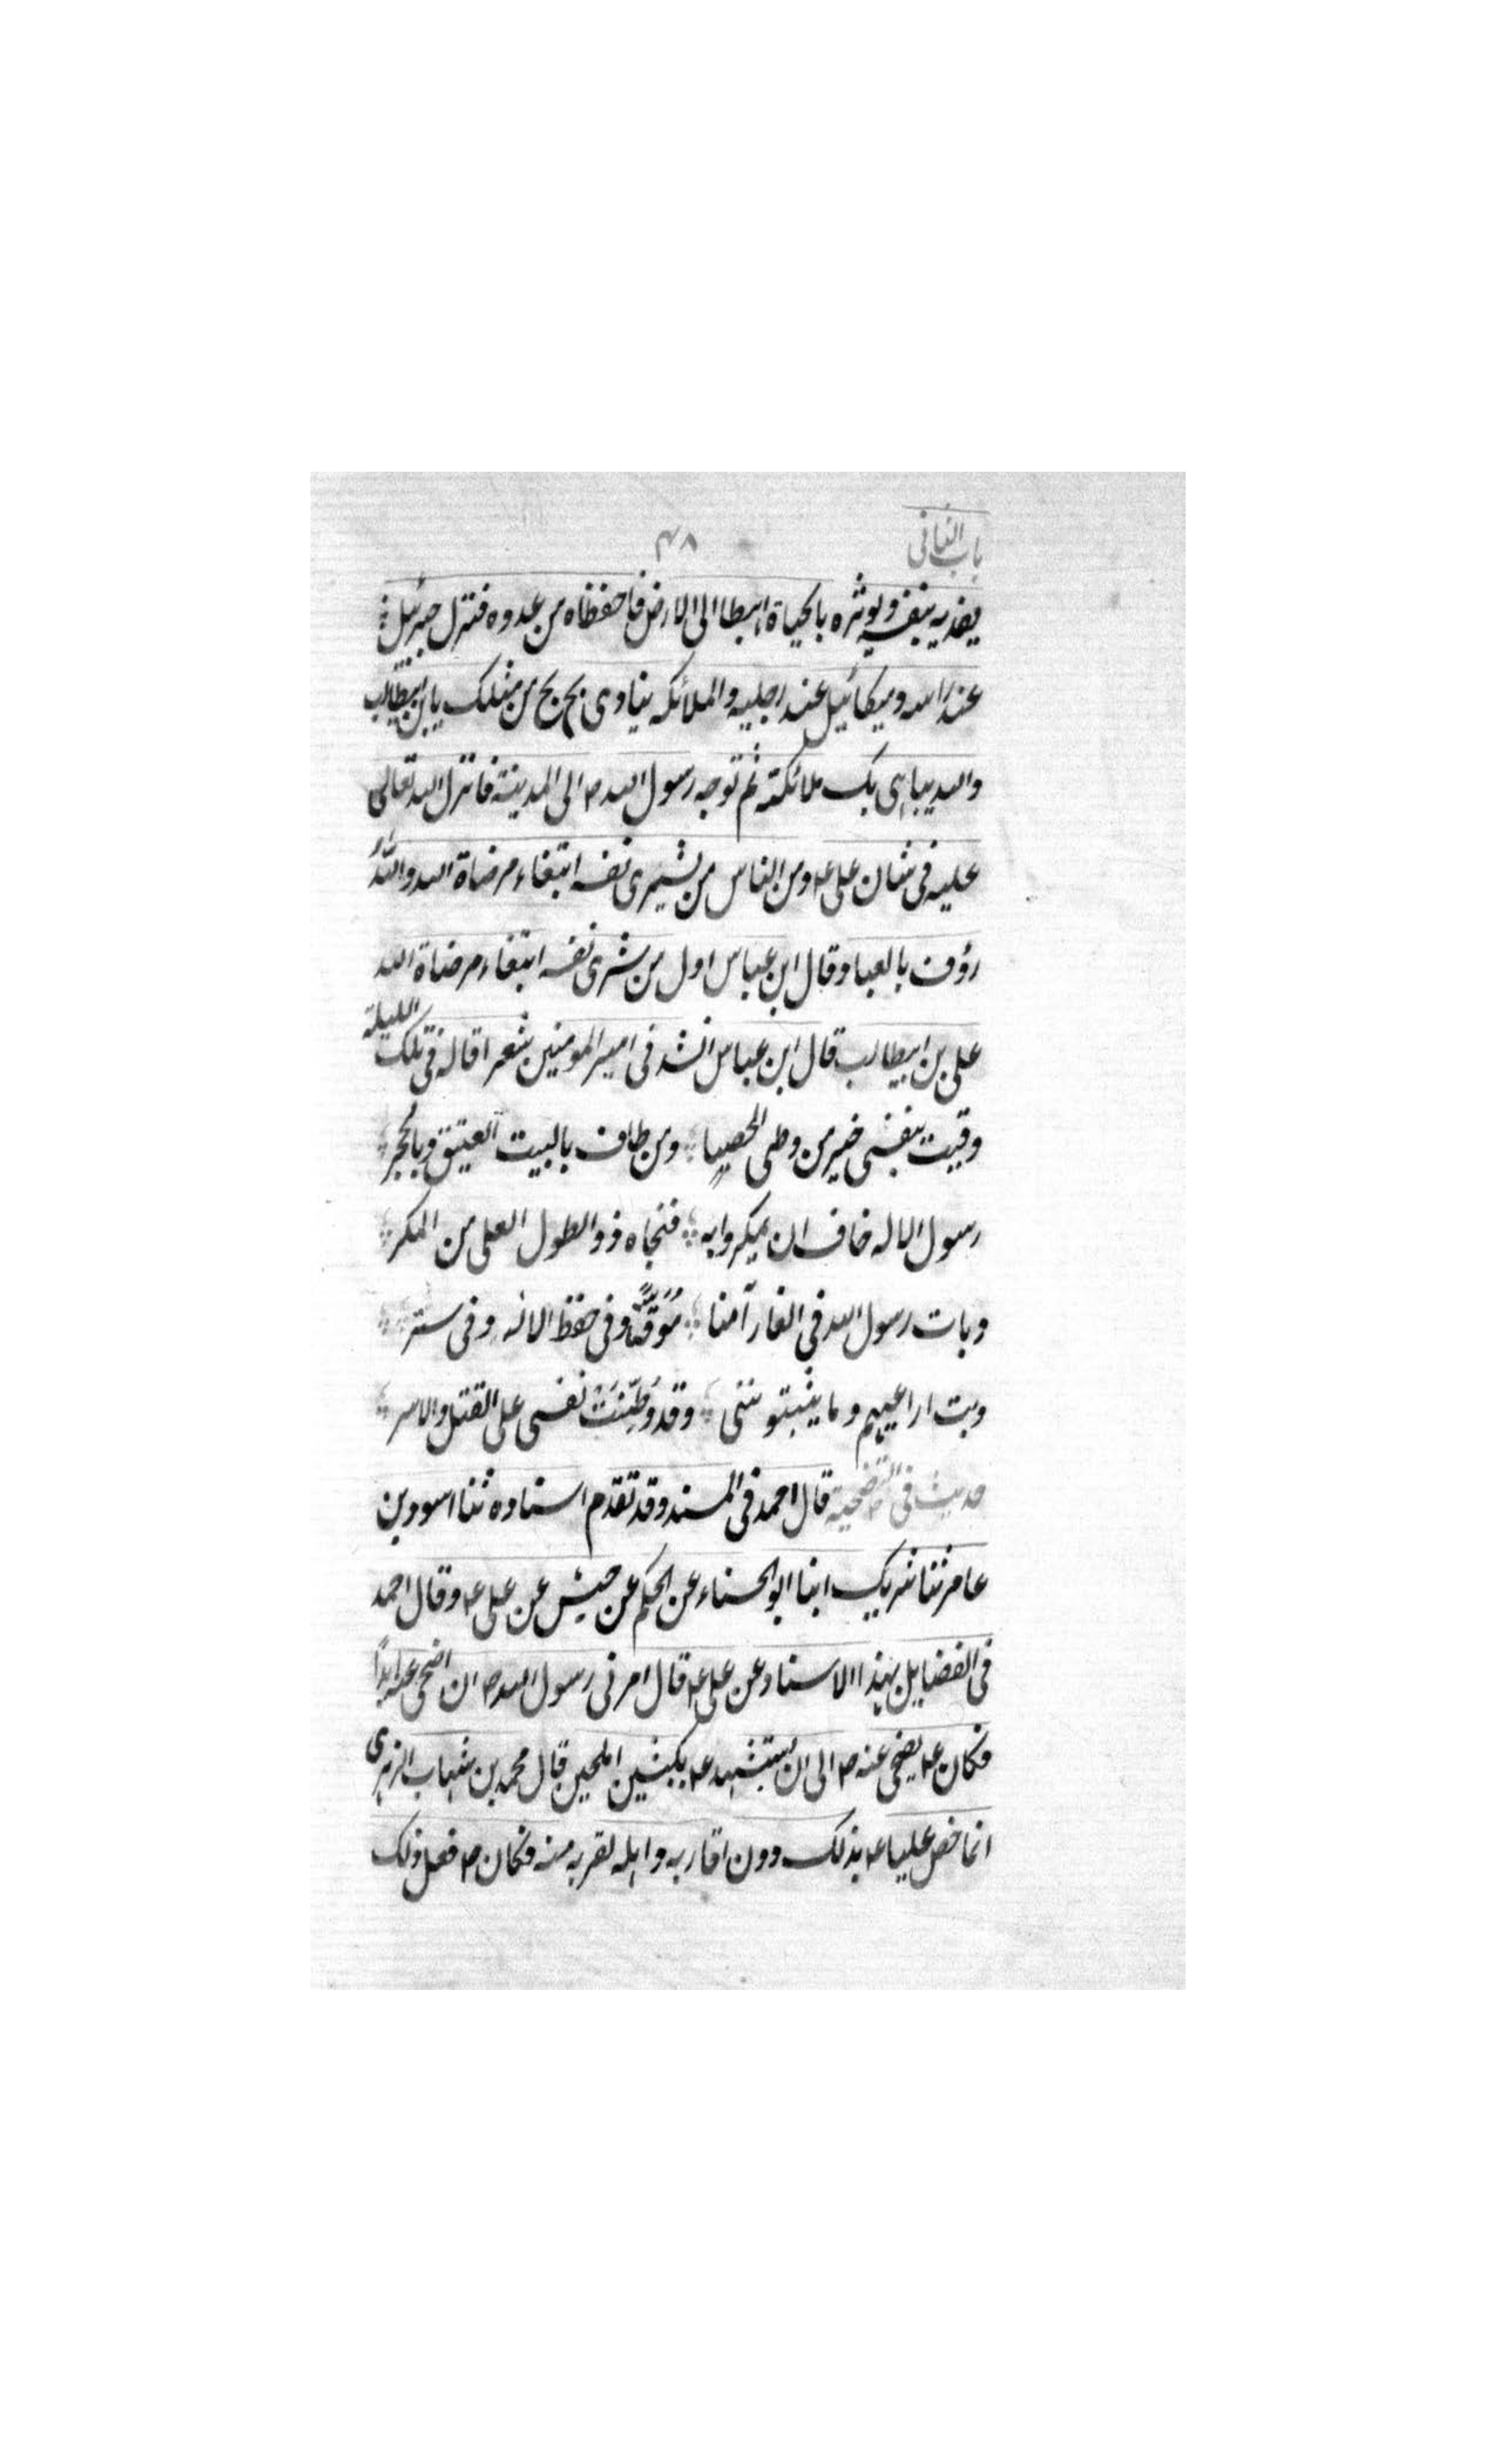 باب الثانى ۴۸
يفديه بنفسه ويوثره بالحياة اهبطا الى الارض فاحفظاه من عدوه فنزل جبرئيل
عند راسه وميكائيل عند رجليه والملائكه ينادى بخ بخ من مثلك يا بن ابيطالب
والله يباهى بك ملائكته ثم توجه رسول الله ص الى المدينة فانزل الله تعالى
عليه فى شان على ع ومن الناس من يشترى نفسه ابتغاء مرضاة الله واللّٰهُ
رؤف بالعباد وقال ابن عباس اول من شرى نفسه ابتغاء مرضاة الله
على بن ابيطالب قال ابن عباس انشد فى اميرالمومنين شعرا قاله فى تلك الليلة
وقيت بنفسى خير من وطى الحصيا ومن طاف بالبيت العتيق وبالحجر
رسول الاله خاف ان يمكروا به فنجاه ذو الطول العلى من المكر
وبات رسول الله فى الغار آمنا مُوَقًّى وفى حفظ الاله وفى ستر
وبت اراعيهم وما يثبتوننى وقد وُطِّنَتْ نفسى على القتل والاسر
حديث فى التضحية قال احمد فى المسند وقد تقدم اسناده ثنا اسود بن
عامر ثنا شريك ابنا ابو الحسناء عن الحكم عن حبيش عن على ع وقال احمد
فى الفضايل بهذا الاسناد عن على ع قال امرنى رسول الله ص ان اضحى عنه ابداً
فكان ع يضحى عنه ص الى ان يستشهد ع بكبشين املحين قال محمد بن شهاب الزهرى
انما خص عليا ع بذلك دون اقاربه واهله لقربه منه فكان ص فعل ذلك